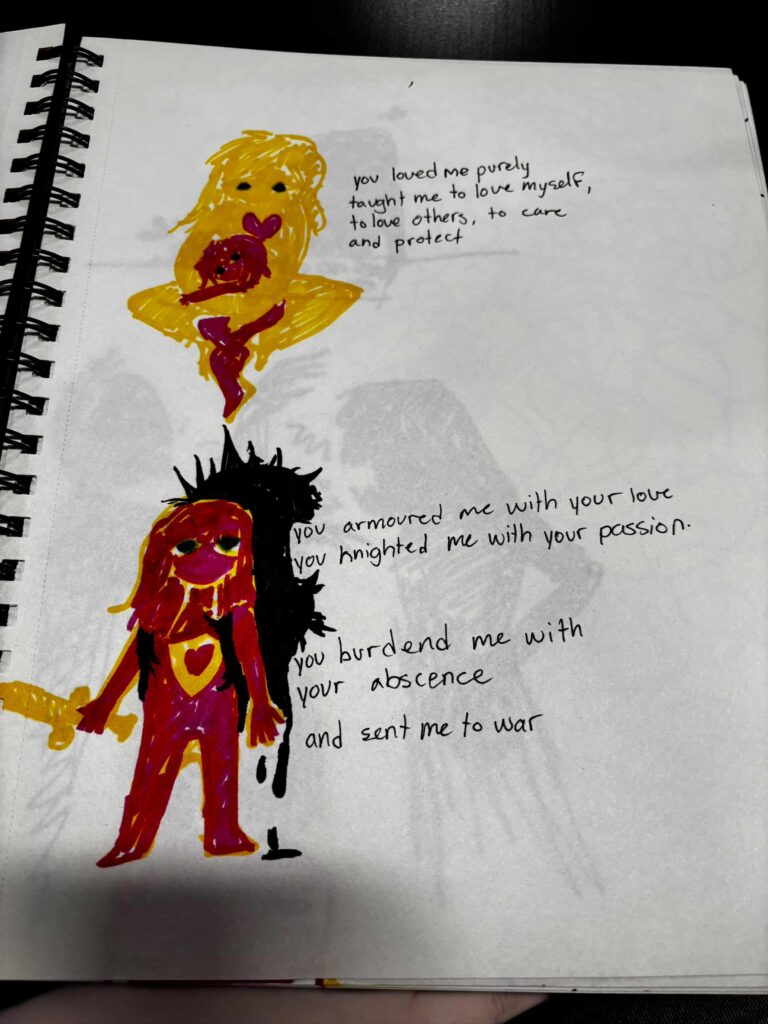 you loved me purely
taught me to love myself,
to love others, to care
and protect
you armoured me with your love
you knighted me with your passion.
you burdend me with
your abscence
and sent me to war